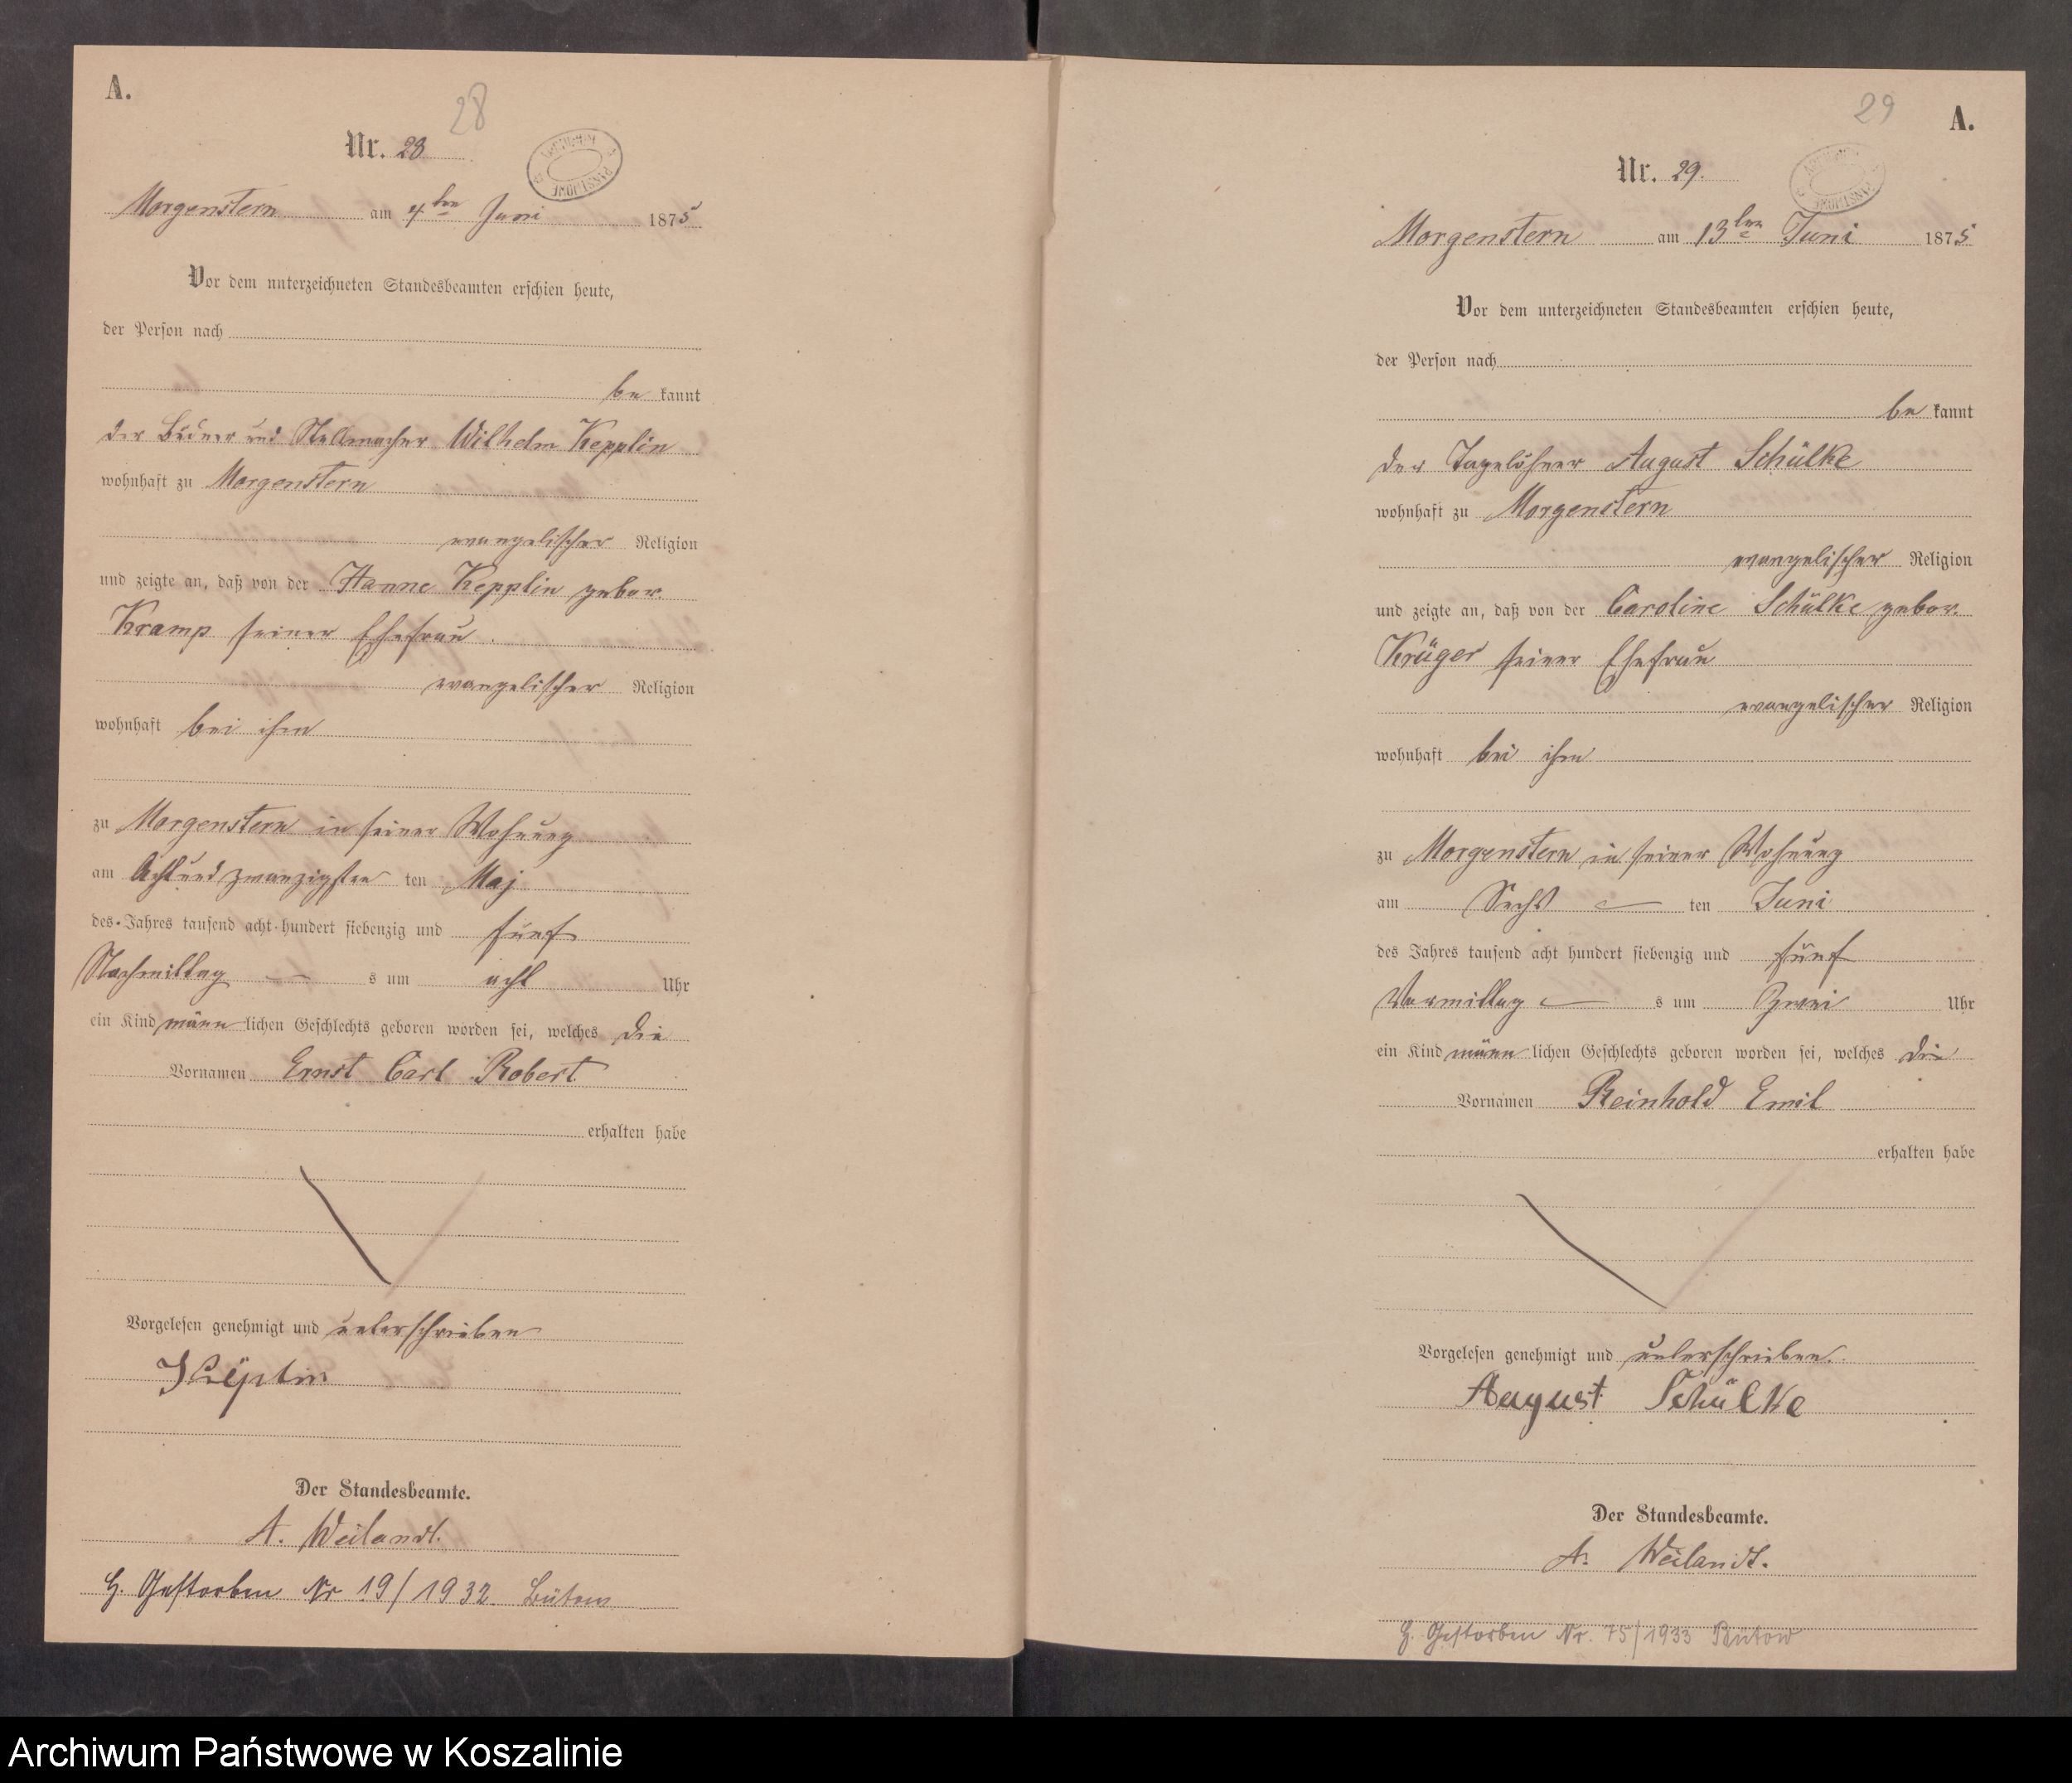 A.
28
Nr. 28
ARCHIWUM PAŃSTWOWE
Morgenstern am 4ten Juni 1875
Vor dem unterzeichneten Standesbeamten erschien heute,
der Person nach
be kannt
der Büdner und Stellmacher Wilhelm Kepplin
wohnhaft zu Morgenstern
evangelischer Religion
und zeigte an, daß von der Hanne Kepplin gebor.
Kramp seiner Ehefrau
evangelischer Religion
wohnhaft bei ihm
zu Morgenstern in seiner Wohnung
am Acht und zwanzigsten ten Maj
des Jahres tausend acht hundert siebenzig und fünf
Nachmittag s um acht Uhr
ein Kind männ lichen Geschlechts geboren worden sei, welches die
Vornamen Ernst Carl Robert
erhalten habe
Vorgelesen genehmigt und unterschrieben
Der Standesbeamte.
A. Weilandt.
H. Gestorben Nr 19/1932 Bütow
29
A.
Nr. 29.
ARCHIWUM PAŃSTWOWE
Morgenstern am 13ten Juni 1875
Vor dem unterzeichneten Standesbeamten erschien heute,
der Person nach
be kannt
der Tagelöhner August Schülke
wohnhaft zu Morgenstern
evangelischer Religion
und zeigte an, daß von der Caroline Schülke gebor.
Krüger seiner Ehefrau
evangelischer Religion
wohnhaft bei ihm
zu Morgenstern in seiner Wohnung
am Sechs ten Juni
des Jahres tausend acht hundert siebenzig und fünf
Vormittag s um Zwei Uhr
ein Kind männ lichen Geschlechts geboren worden sei, welches die
Vornamen Reinhold Emil
erhalten habe
Vorgelesen genehmigt und unterschrieben.
August Schülke
Der Standesbeamte.
A. Weilandt.
H. Gestorben Nr. 75/1933 Bütow
Archiwum Państwowe w Koszalinie